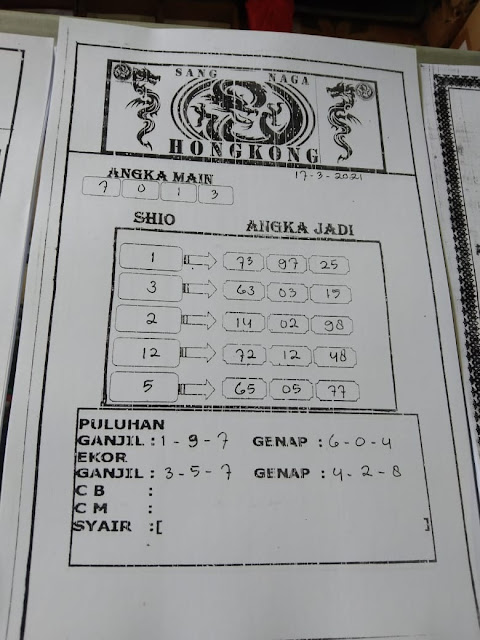 SANG NAGA
HONGKONG
17-3-2021
ANGKA MAIN
7 0 1 3
SHIO ANGKA JADI
1 73 97 25
3 63 03 15
2 14 02 98
12 72 12 48
5 65 05 77
PULUHAN
GANJIL : 1 - 9 - 7 GENAP : 6 - 0 - 4
EKOR
GANJIL : 3 - 5 - 7 GENAP : 4 - 2 - 8
C B :
C M :
SYAIR :[ ]